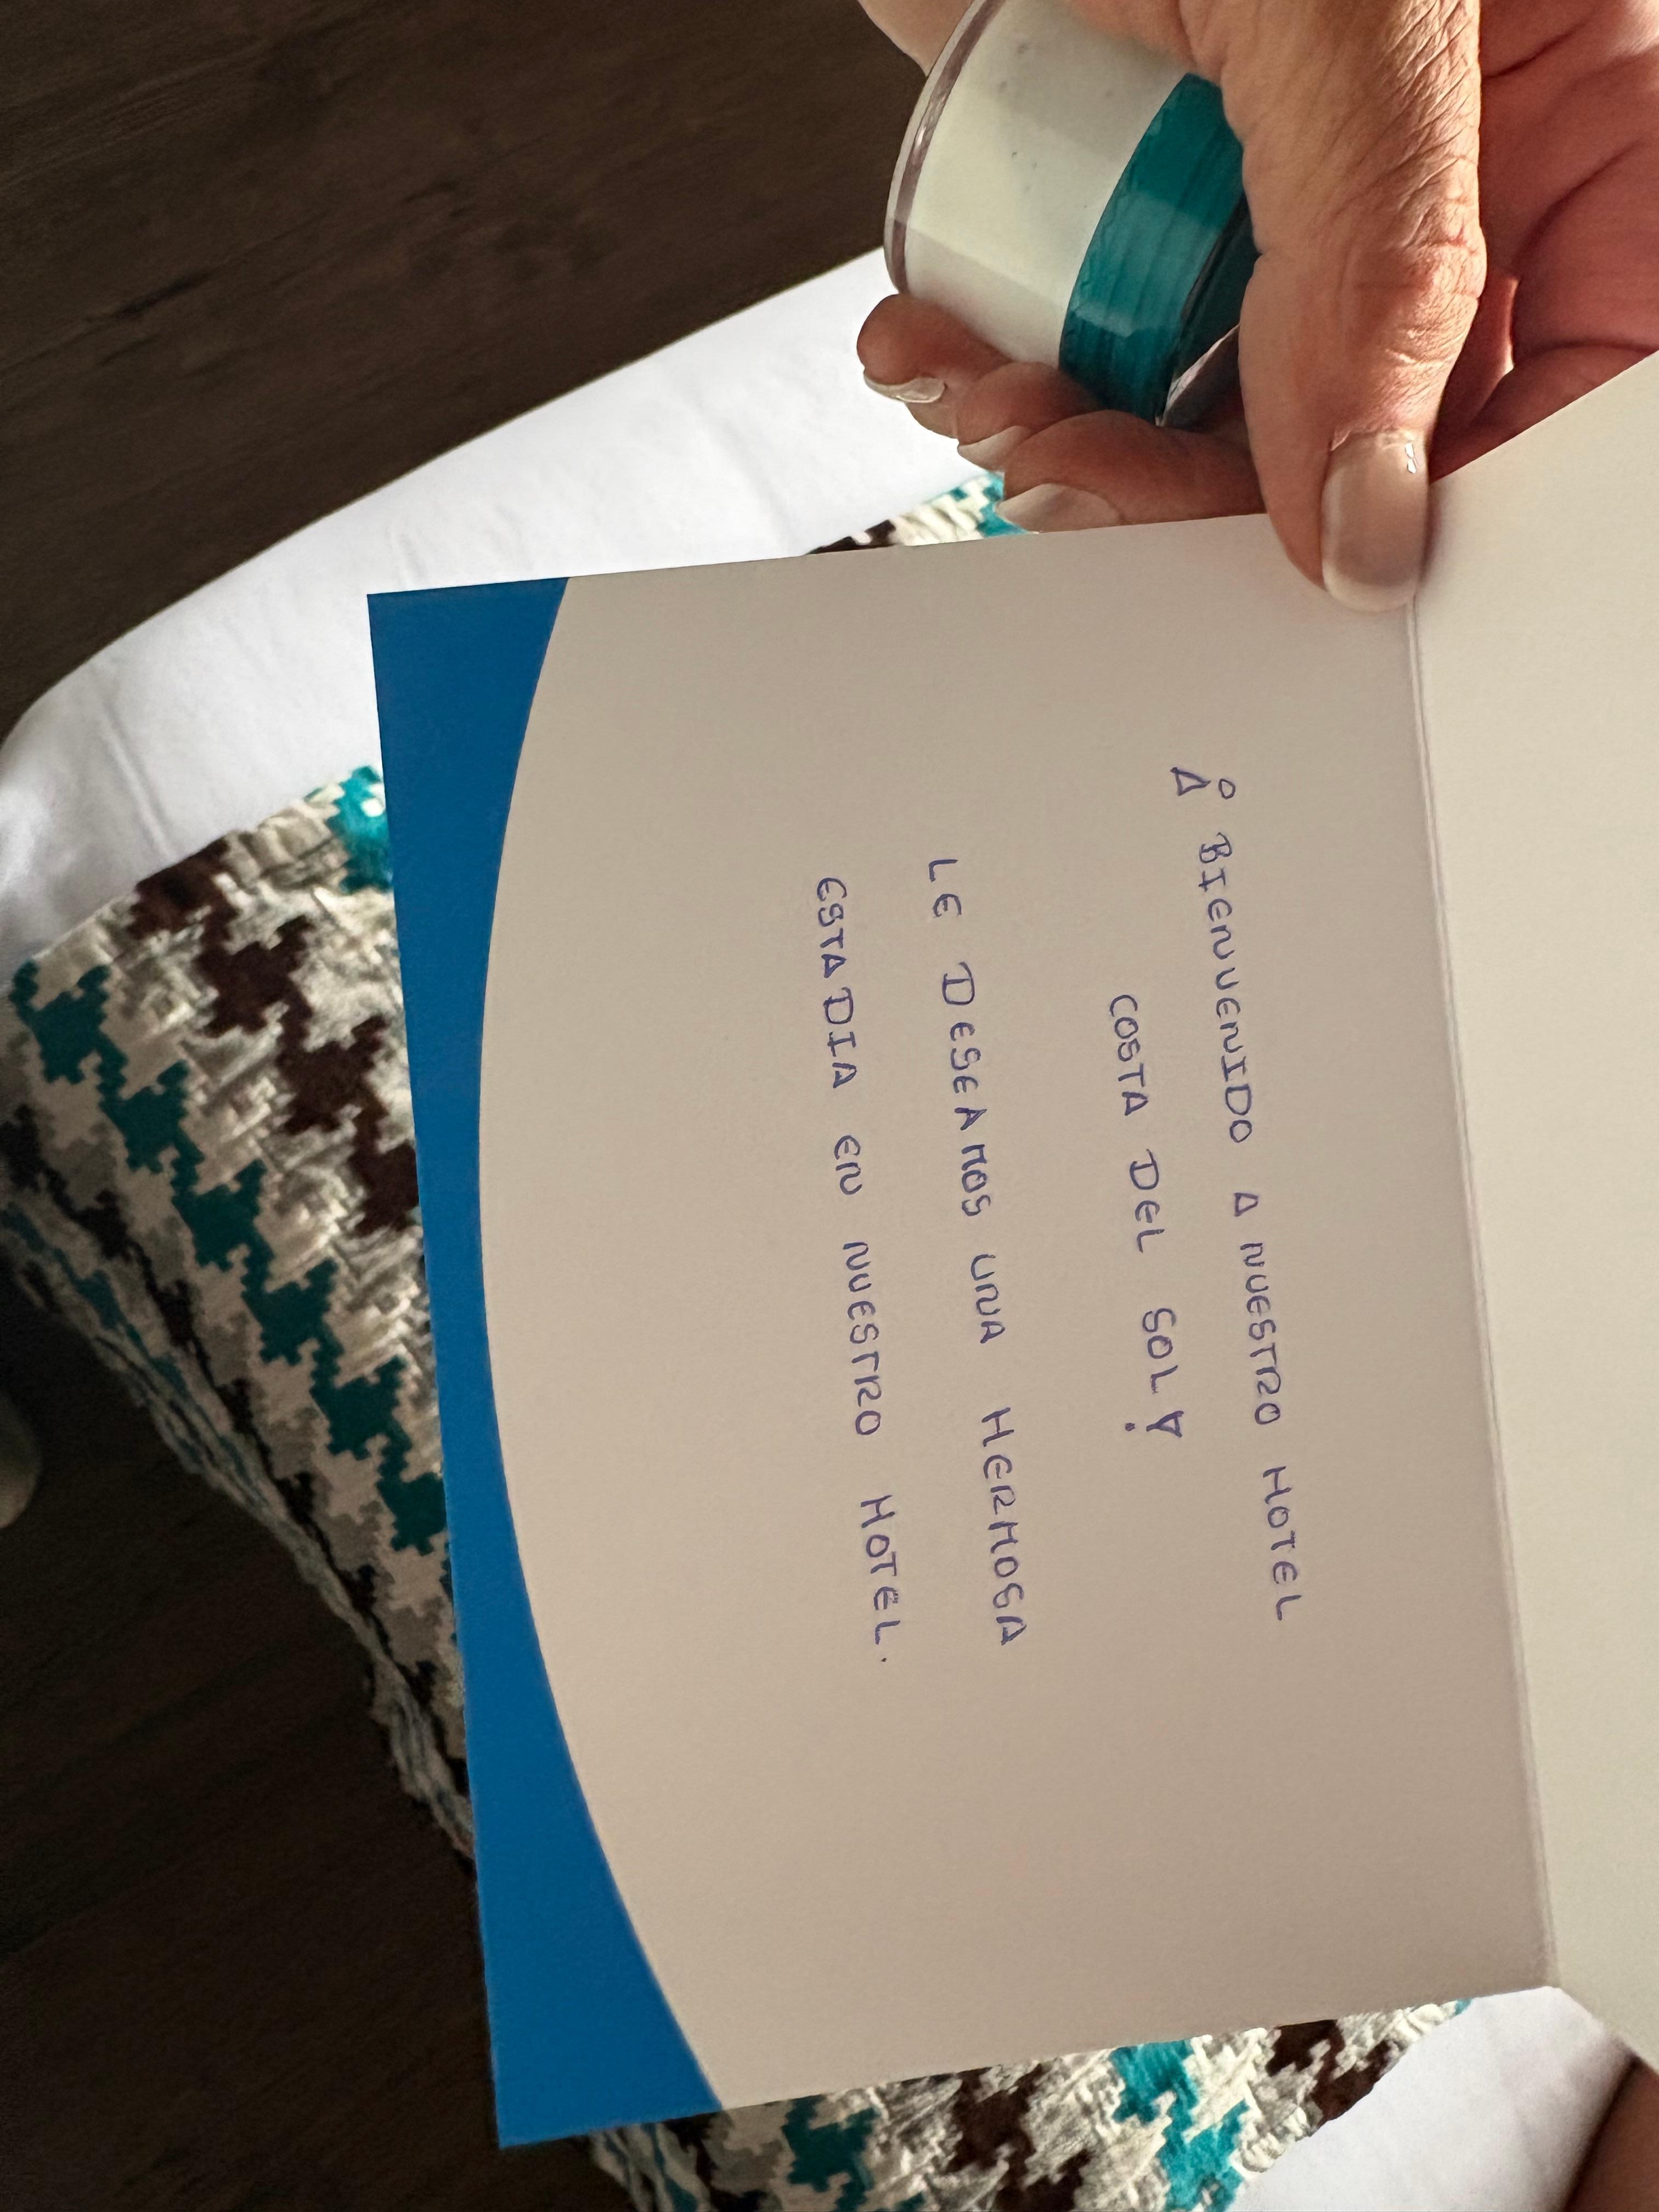 ¡ BIENVENIDO A NUESTRO HOTEL
COSTA DEL SOL !
LE DESEAMOS UNA HERMOSA
ESTADIA EN NUESTRO HOTEL.